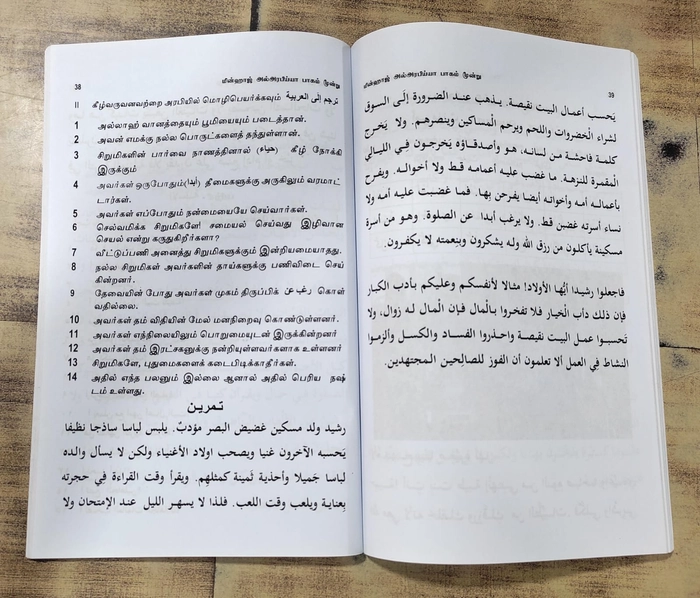 38
மின்ஹாஜ் அல்அரபிய்யா பாகம் மூன்று
II கீழ்வருவனவற்றை அரபியில் மொழிபெயர்க்கவும் ترجم إلى العربية
1 அல்லாஹ் வானத்தையும் பூமியையும் படைத்தான்.
2 அவன் எமக்கு நல்ல பொருட்களைத் தந்துள்ளான்.
3 சிறுமிகளின் பார்வை நாணத்தினால் (حياء) கீழ் நோக்கி
இருக்கும்
4 அவர்கள் ஒருபோதும் (أبدا) தீமைகளுக்கு அருகிலும் வரமாட்
டார்கள்.
5 அவர்கள் எப்போதும் நன்மையையே செய்வார்கள்.
6 செல்வமிக்க சிறுமிகளே! சமையல் செய்வது இழிவான
செயல் என்று கருதுகிறீர்களா?
7 வீட்டுப்பணி அனைத்து சிறுமிகளுக்கும் இன்றியமையாதது.
8 நல்ல சிறுமிகள் அவர்களின் தாய்களுக்கு பணிவிடை செய்
கின்றனர்.
9 தேவையின் போது அவர்கள் முகம் திருப்பிக் رغب عن கொள்
வதில்லை.
10 அவர்கள் தம் விதியின் மேல் மனநிறைவு கொண்டுள்ளனர்.
11 அவர்கள் எந்நிலையிலும் பொறுமையுடன் இருக்கின்றனர்
12 அவர்கள் தம் இரட்சகனுக்கு நன்றியுள்ளவர்களாக உள்ளனர்
13 சிறுமிகளே, புதுமைகளைக் கடைபிடிக்காதீர்கள்.
14 அதில் எந்த பலனும் இல்லை ஆனால் அதில் பெரிய நஷ்
டம் உள்ளது.
تمرين
رشيد ولد مسكين غضيض البصر مؤدبٌ. يلبس لباسا ساذجا نظيفا
يَحسبه الآخرون غنيا ويصحب اولاد الأغنياء ولكن لا يسأل والده
لباسا جَميلا وأحذية ثَمينة كمثلهم. ويقرأ وقت القراءة في حجرته
بِعناية ويلعب وقت اللعب. فلذا لا يسهر الليل عند الإمتحان ولا
மின்ஹாஜ் அல்அரபிய்யா பாகம் மூன்று
39
يَحسب أعمال البيت نقيصة. يذهب عند الضرورة إلَى السوق
لشراء الخضروات واللحم ويرحم المساكين وينصرهم. ولا يَخرج
كلمة فاحشة من لسانه، هو وأصدقاؤه يَخرجون في الليالي
المقمرة للنزهة. ما غضب عليه أعمامه قط ولا أخواله. ويفرح
بأعماله أمه وأخواته أيضا يفرحن بِها. فما غضبت عليه أمه ولا
نساء أسرته غضبن قط. ولا يرغب أبدا عن الصلوة. وهو من أسرة
مسكينة يأكلون من رزق الله وله يشكرون وبنعمته لا يكفرون.
فاجعلوا رشيدا أيُّها الأولاد! مثالا لأنفسكم وعليكم بأدب الكبار
فإن ذلك دأب الْخيار فلا تفخروا بالْمال فإن الْمال له زوال، ولا
تَحسبوا عمل البيت نقيصة واحذروا الفساد والكسل وألزموا
النشاط في العمل ألا تعلمون أن الفوز للصالحين المجتهدين.